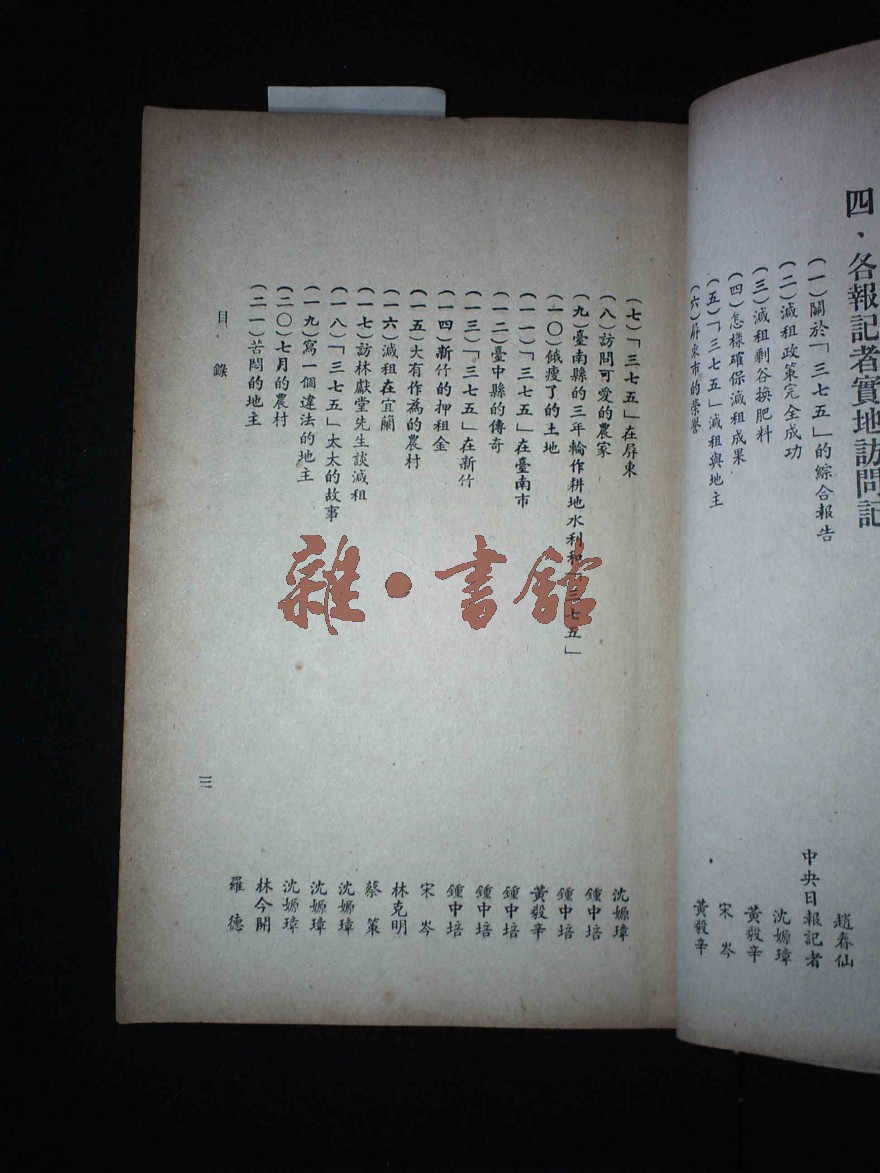 四、各報記者實地訪問記
(一)關於「三七五」的綜合報告 趙春仙
(二)減租政策完全成功 中央日報記者
(三)減租剩谷換肥料 沈嫄璋
(四)怎樣確保減租成果 黃毅辛
(五)「三七五」減租與地主 宋岑
(六)屏東市的榮譽 黃毅辛
(七)「三七五」在屏東 沈嫄璋
(八)訪問可愛的農家 鍾中培
(九)臺南縣的三年輪作耕地水利和「三七五」 鍾中培
(一〇)餓瘦了的土地 黃毅辛
(一一)「三七五」在臺南市 鍾中培
(一二)臺中縣的傳奇 鍾中培
(一三)「三七五」在新竹 鍾中培
(一四)新竹的押租金 宋岑
(一五)大有作為的農村 林克明
(一六)減租在宜蘭 蔡策
(一七)訪林獻堂先生談減租 沈嫄璋
(一八)「三七五」太太的故事 沈嫄璋
(一九)寫一個違法的地主 沈嫄璋
(二〇)七月的農村 林今開
(二一)苦悶的地主 羅德
目錄
三
雜·書館